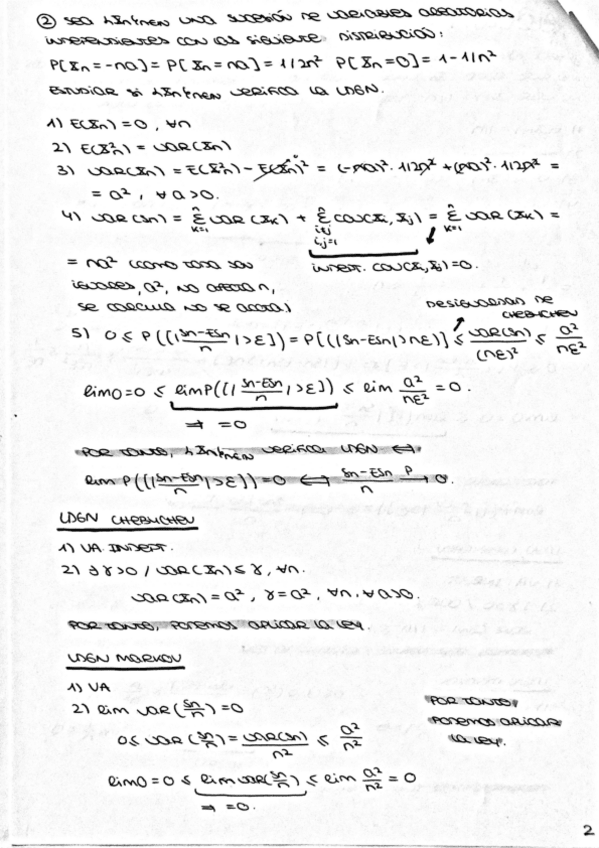 ② SEA {Xn}n∈N UNA SUCESIÓN DE VARIABLES ALEATORIAS
INDEPENDIENTES CON LAS SIGUIENTE DISTRIBUCIÓN:
P[Xn = -na] = P[Xn = na] = 1/2n² P[Xn = 0] = 1 - 1/n²
ESTUDIAR SI {Xn}n∈N VERIFICA LA LDGN.
1) E(Xn) = 0, ∀n
2) E(X²n) = VAR(Xn)
3) VAR(Xn) = E(X²n) - E(Xn)² = (-na)² · 1/2n² + (na)² · 1/2n² =
= a², ∀ a > 0.
4) VAR(Sn) = Σ VAR(Xk) + Σ COV(Xi, Xj) = Σ VAR(Xk) =
n k=1 n i≠j i,j=1 n k=1
= na² (COMO TODA SON
IGUALES, a², NO AFECTA n,
SE CALCULA NO SE ACOTA)
INDEP. COV(Xi, Xj) = 0.
DESIGUALDAD DE CHEBYCHEV
5) 0 ≤ P((|Sn-ESn/n| > ε]) = P[((|Sn-ESn| > nε)] ≤ VAR(Sn)/(nε)² ≤ a²/nε²
lim 0 = 0 ≤ lim P((|Sn-ESn/n| > ε]) ≤ lim a²/nε² = 0.
⇒ = 0
POR TANTO, {Xn}n∈N VERIFICA LDGN ⇔
lim P((|Sn-ESn/n| > ε)) = 0 ⇔ Sn-ESn/n P→ 0.
LDGN CHEBYCHEV
1) VA INDEP.
2) ∃ γ > 0 / VAR(Xn) ≤ γ, ∀n.
VAR(Xn) = a², γ = a², ∀n. ∀ a > 0.
POR TANTO, PODEMOS APLICAR LA LEY.
LDGN MARKOV
1) VA
2) lim VAR(Sn/n) = 0
0 ≤ VAR(Sn/n) = VAR(Sn)/n² ≤ a²/n²
lim 0 = 0 ≤ lim VAR(Sn/n) ≤ lim a²/n² = 0
⇒ = 0.
POR TANTO,
PODEMOS APLICAR
LA LEY.
2